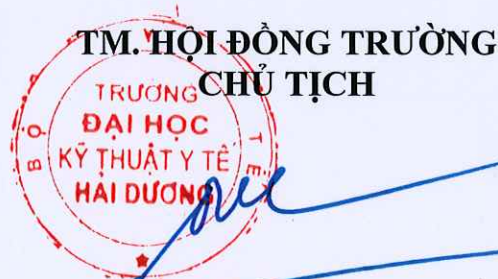 TM. HỘI ĐỒNG TRƯỜNG
CHỦ TỊCH
BỘ Y TẾ
TRƯỜNG
ĐẠI HỌC
KỸ THUẬT Y TẾ
HẢI DƯƠNG